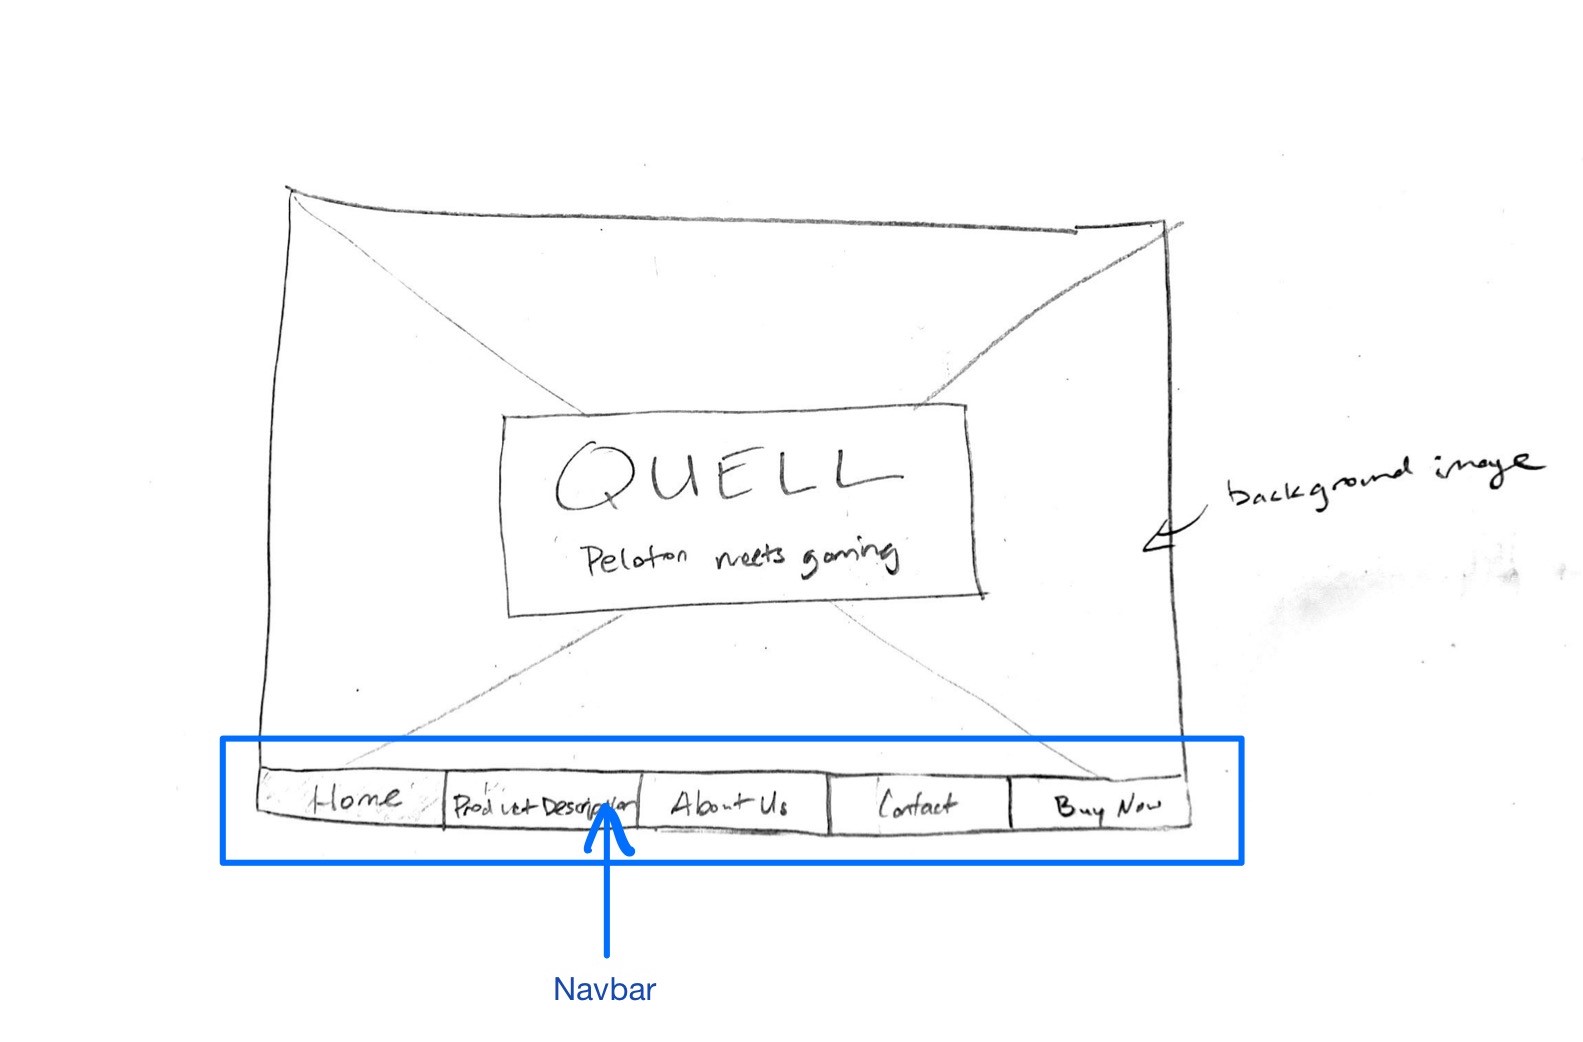 QUELL
Peloton meets gaming
background image
Home
Product Description
About Us
Contact
Buy Now
Navbar